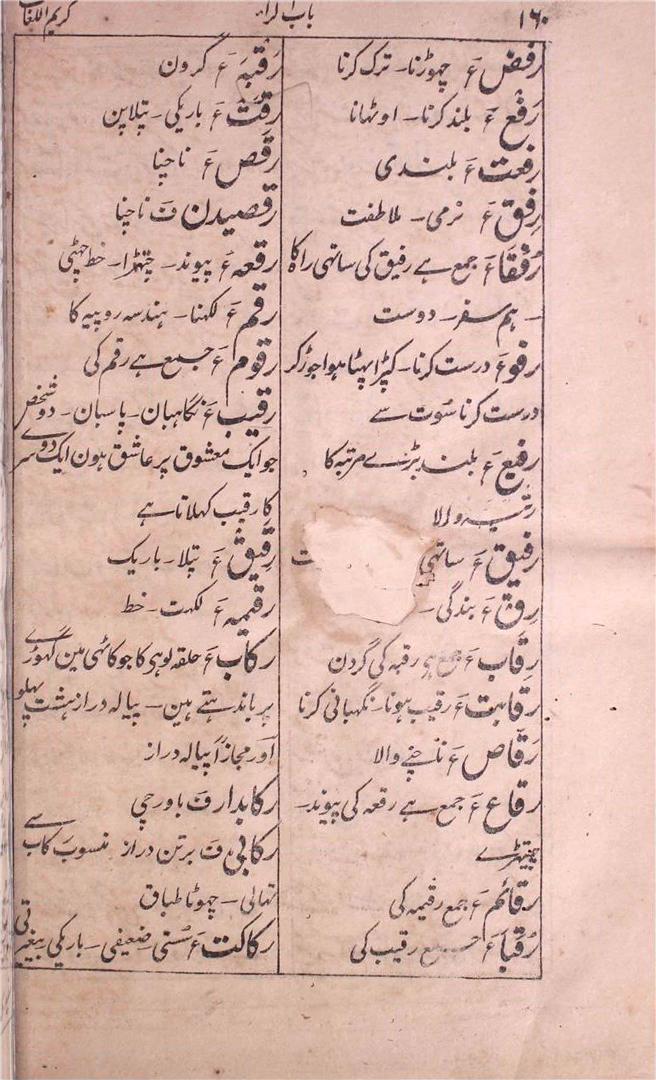 ۱۶۰
باب الرا
کریم اللغات
رفض ع چھوڑنا۔ ترک کرنا
رَفع ع بلند کرنا۔ اوٹھانا
رفعت ع بلندی
رِفق ع نرمی۔ ملاطفت
رُفقاء ع جمع ہے رفیق کی ساتھی راہ کا
۔ ہم سفر۔ دوست
رفو ع درست کرنا۔ کپڑا پھٹا ہوا جوڑ کر
درست کرنا سُوت سے
رفیع ع بلند بڑے مرتبہ کا
رتبہ والا
رفیق ع ساتھی
رِق ع بندگی۔
رِقاب ع جمع ہی رقبہ کی گردن
رقابت ع رقیب ہونا۔ نگہبانی کرنا
رَقاص ع ناچنے والا
رقاع ع جمع ہے رقعہ کی پیوند۔
چیتھڑے
رقائم ع جمع رقیمہ کی
رُقبا ع جمع رقیب کی
رَقبہ ع گردن
رِقت ع باریکی۔ پتلا پن
رقص ع ناچنا
رقصیدن ف ناچنا
رقعہ ع پیوند۔ چتھڑا۔ خط چھٹی
رقم ع لکھنا۔ ہندسہ روپیہ کا
رقوم ع جمع ہے رقم کی
رقیب ع نگاہبان۔ پاسبان۔ دو شخص
جو ایک معشوق پر عاشق ہون ایک دوسرے
کا رقیب کہلاتا ہے
رقیق ع پتلا۔ باریک
رقیمہ ع لکھت۔ خط
رکاب ع حلقہ لوہی کا جو کاٹھی مین گھوڑے
پر باندھتے ہین۔ پیالہ دراز ہشت پہلو
اور مجازاً پیالہ دراز
رکابدار ف باورچی
رکابی ف برتن دراز منسوب رکاب سے
تھالی۔ چھوٹا طباق
رکاکت ع سُستی ضعیفی۔ باریکی بیغیرتی